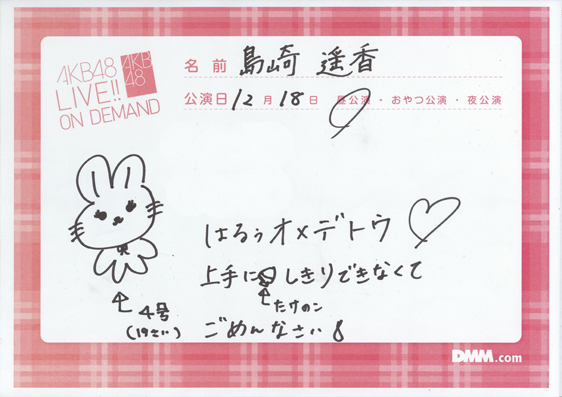 AKB48
LIVE!!
ON DEMAND
AKB
48
名前 島崎 遥香
公演日 12月18日 昼公演・おやつ公演・夜公演
はるぅオメデトウ♡
上手にしきりできなくて
たけのこ
ごめんなさい
4号
(19さい)
DMM.com